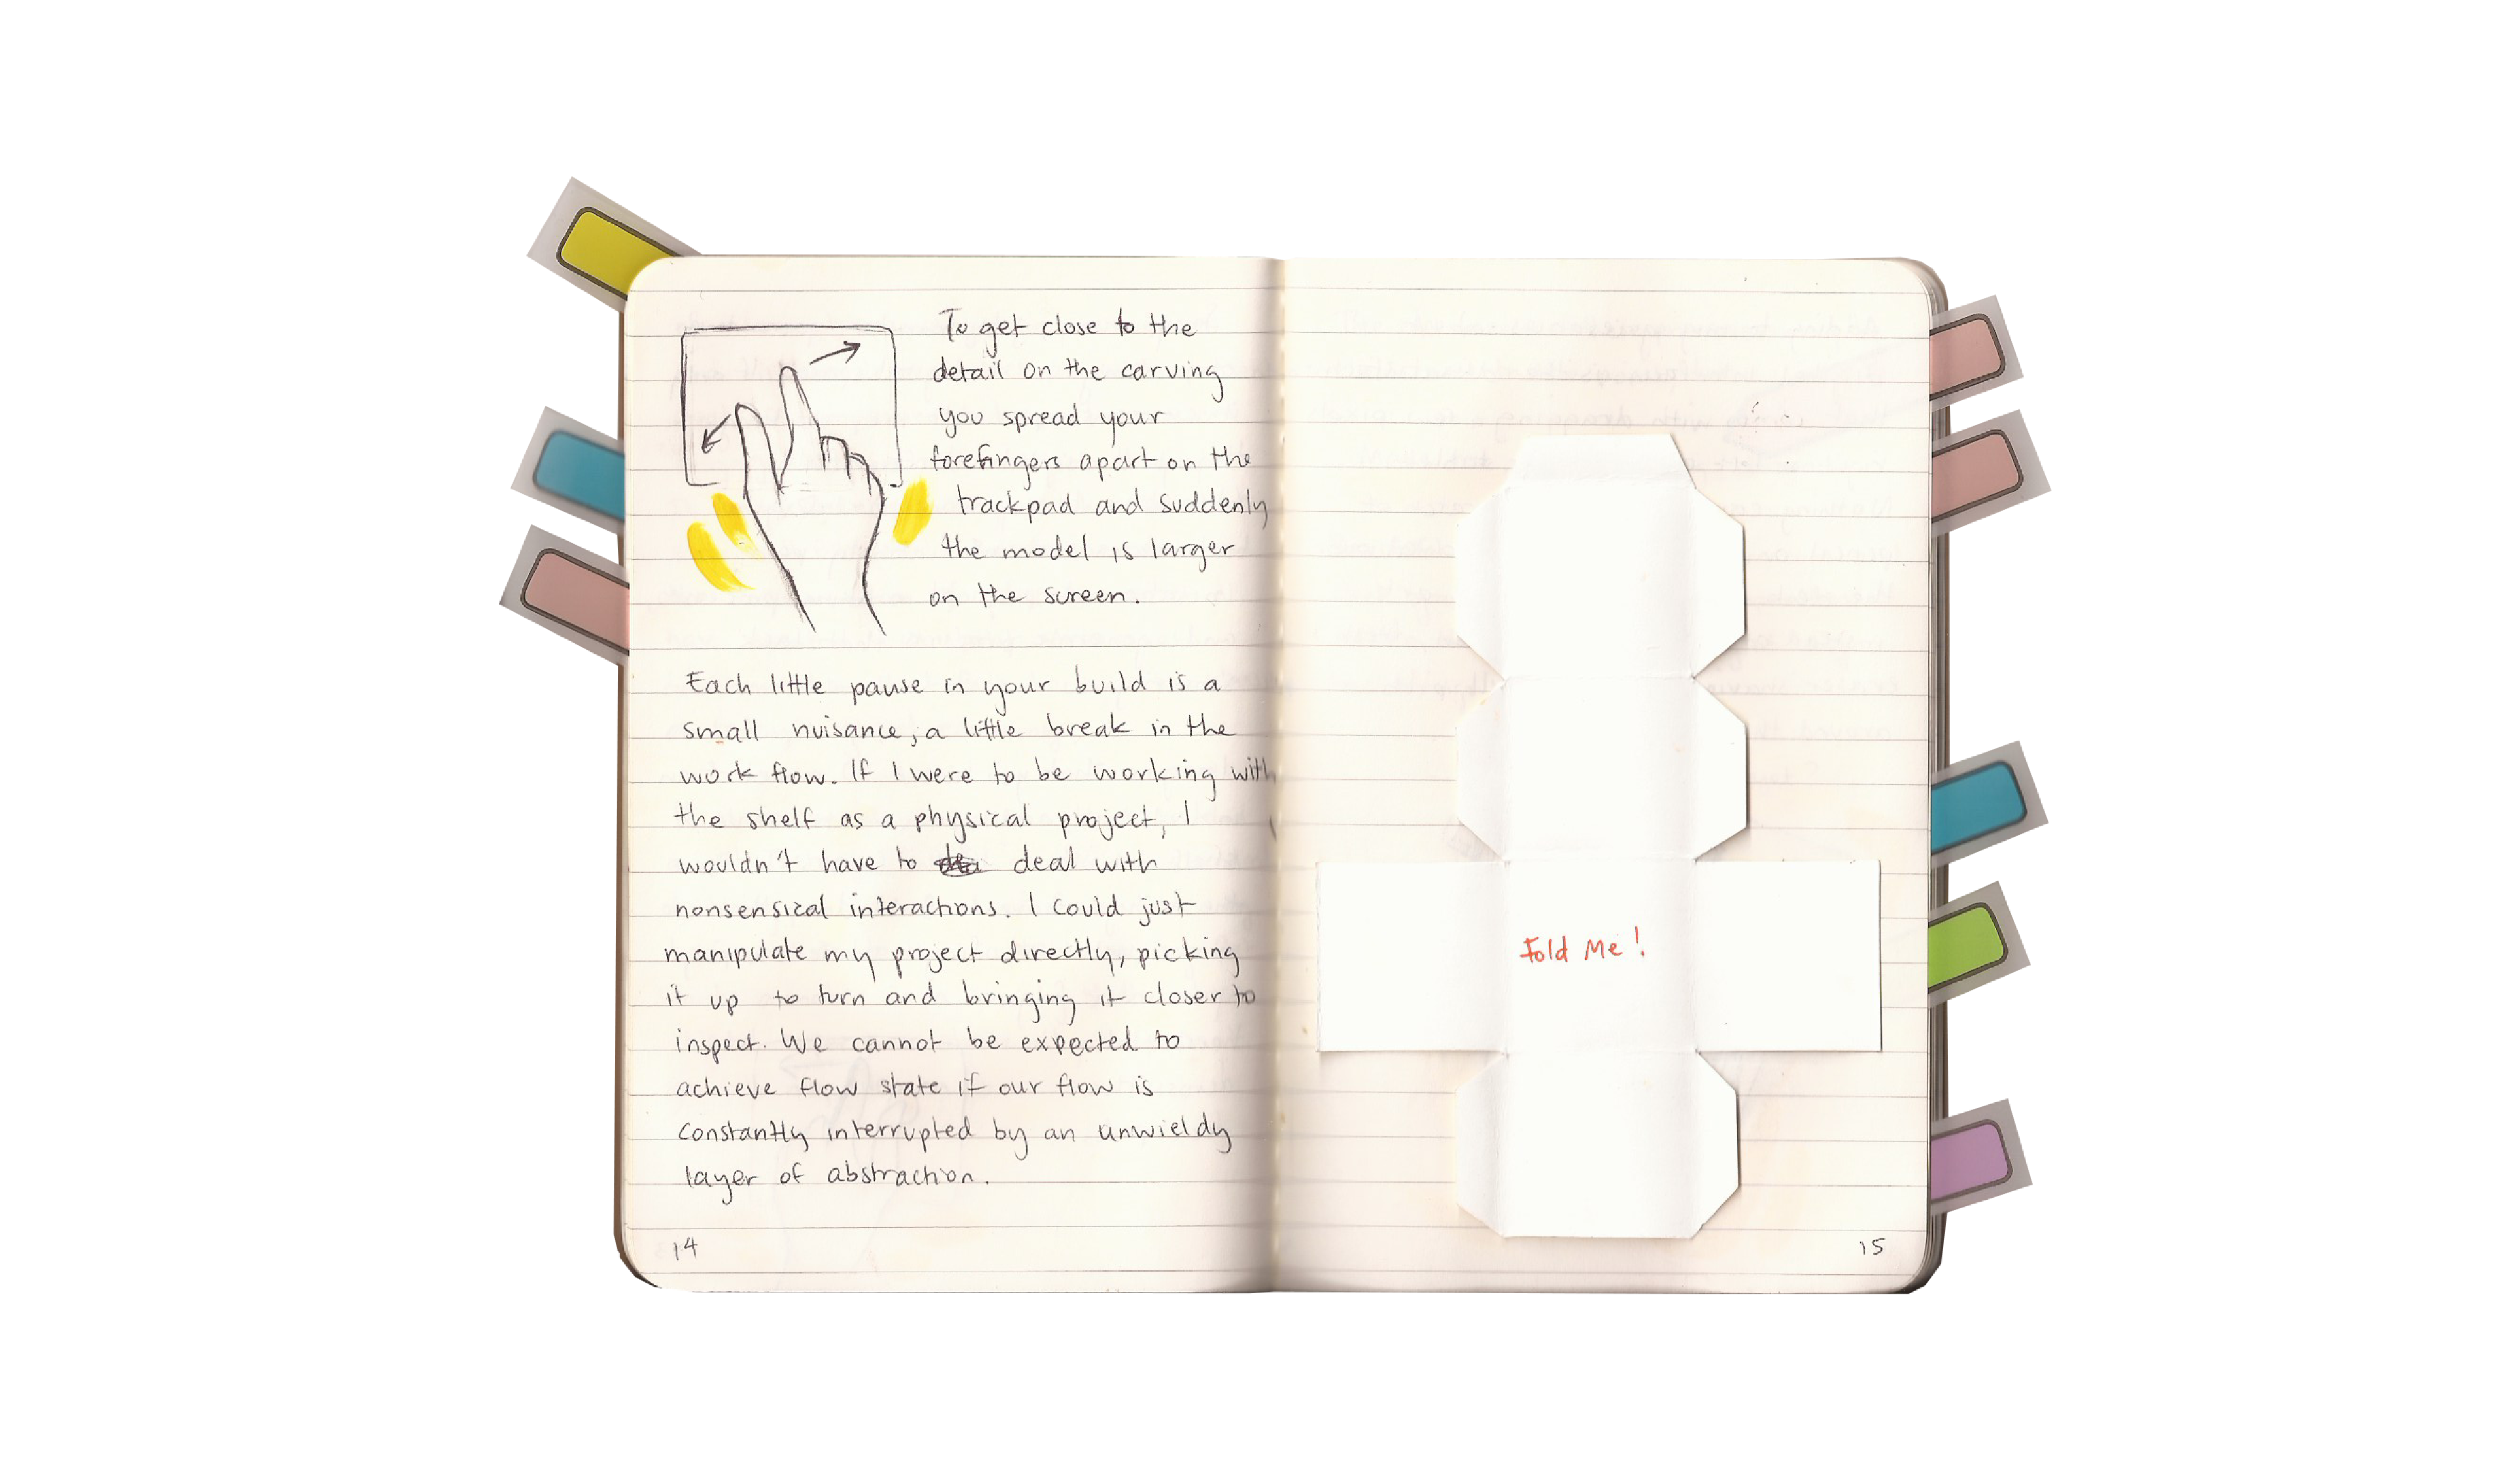 To get close to the
detail on the carving
you spread your
forefingers apart on the
trackpad and suddenly
the model is larger
on the screen.
Each little pause in your build is a
small nuisance, a little break in the
work flow. If I were to be working with
the shelf as a physical project, I
wouldn't have to deal with
nonsensical interactions. I could just
manipulate my project directly, picking
it up to turn and bringing it closer to
inspect. We cannot be expected to
achieve flow state if our flow is
constantly interrupted by an unwieldy
layer of abstraction.
14
Fold Me!
15